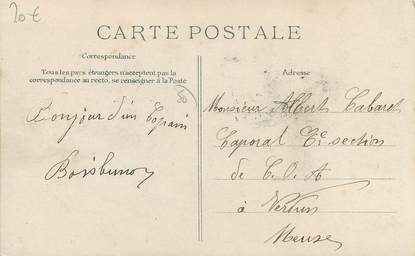 20€
CARTE POSTALE
Correspondance
Tous les pays étrangers n'acceptent pas la
correspondance au recto, se renseigner à la Poste
Adresse
Bonjour d'un Copain
Monsieur Albert Cabaret
Caporal section
de C.O.A
à Verdun
Meuse